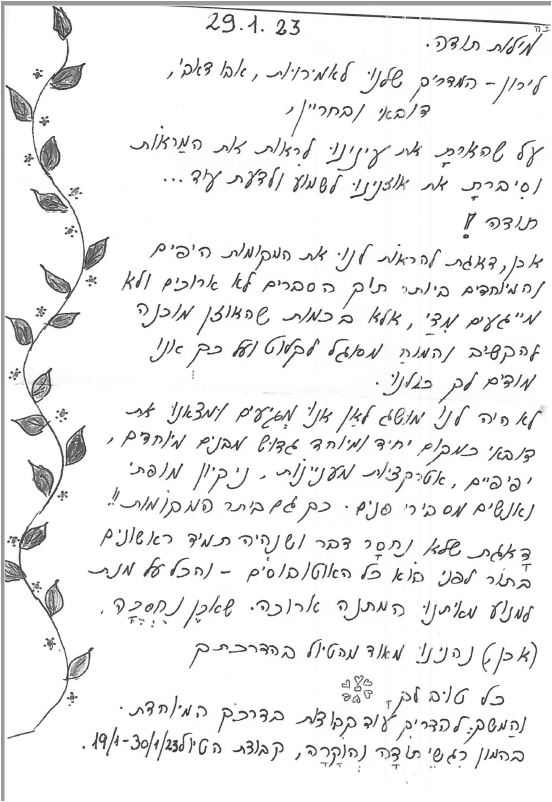 ב"ה
29.1.23
מילות תודה.
לירון - המדריך שלנו לאמירויות, אבו דאבי,
דובאי ובחריין,
על שהארתָ את עינינו לראות את המַראות
וסִיברתָ את אוזנינו לשמוע ולדעת עוד...
תודה!
אכן, דאגת להראות לנו את המקומות היפים
והמיוחדים ביותר תוך הסברים לא ארוכים ולא
מייגעים מִדַי, אלא בכמות שהאוזן מוכנה
להקשיב והמוֹח מסוגל לקלוט ועל כך אנו
מודים לך כולנו.
לא היה לנו מושג לאן אנו מַגיעים ומצאנו את
דובאי כמקום יחיד ומיוחד גדוש מבנים מיוחדים,
יפיפיים, אטרקציות מעניינות, ניקיון מופתי
ואנשים מסבירי פנים. כך גם ביתר המקומות!!
דָאגת שלא נחסָר דבר ושנהיה תמיד ראשונים
בתור לפני בוֹא כל האוטובוסים - והכל על מנת
למנוע מאיתנו המתנה ארוכה. שאכֶן נֶחְסְכָה.
(אכן,) נהנינו מאוד מהטיול בהדרכתך
כל טוב לךָ
והַמשֵך להדריך עוד קבוצות בדרכך המיוחדת.
בהמון רִגשֵי תודָה והוֹקרָה, קבוצת הטיול 19/1-30/1/23.